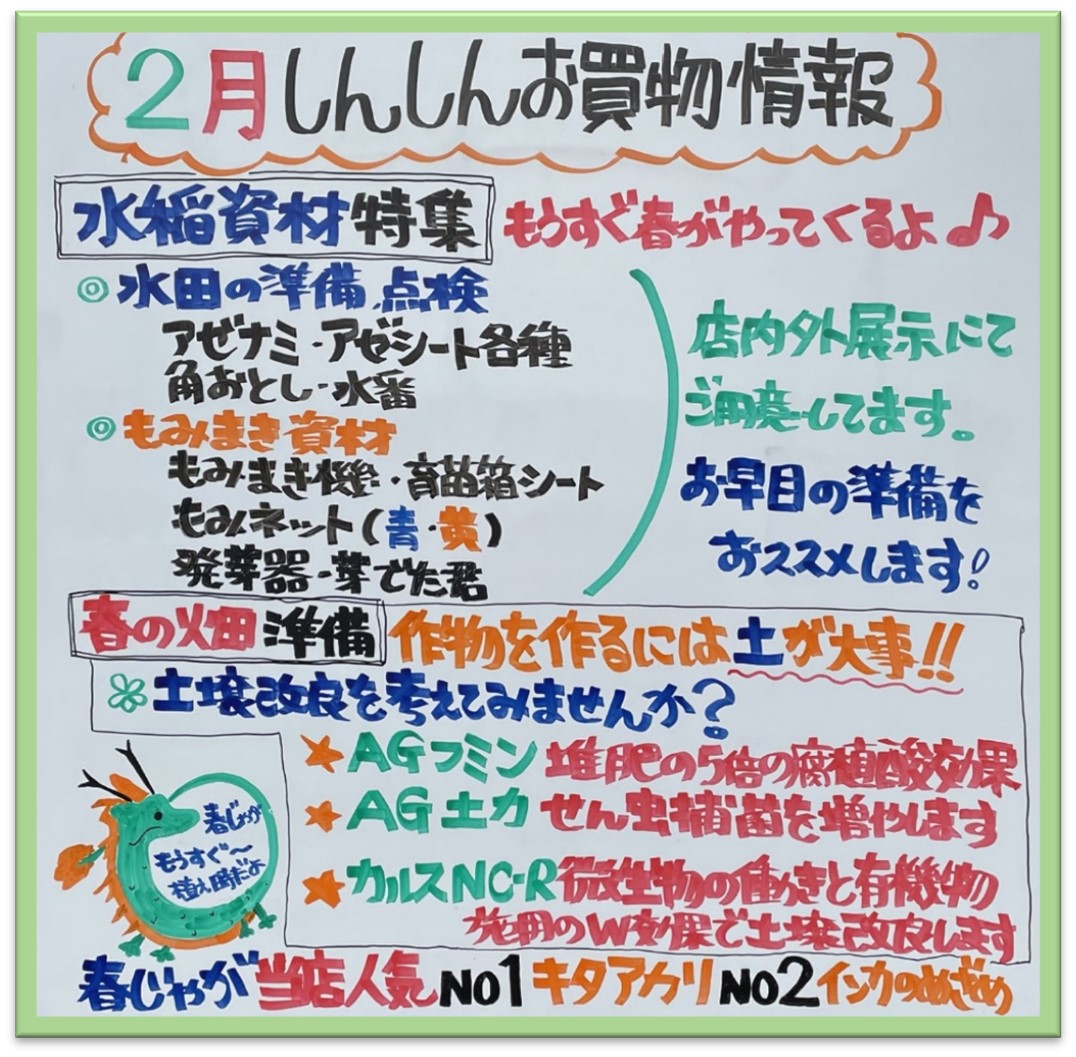 2月しんしんお買物情報
水稲資材特集 もうすぐ春がやってくるよ♪
◎水田の準備、点検
アゼナミ・アゼシート各種
角おとし・水番
◎もみまき資材
もみまき機・育苗箱シート
もみネット(青・黄)
発芽器・芽でた君
店内外展示にて
ご用意してます。
お早目の準備を
おススメします!
春の畑準備 作物を作るには土が大事!!
※土壌改良を考えてみませんか?
★AGフミン 堆肥の5倍の腐植酸効果
★AG土力 せん虫補菌を増やします
★カルスNC-R 微生物の働きと有機物
施用のW効果で土壌改良します
春じゃが
もうすぐ~
植え時だよ
春じゃが当店人気NO1キタアカリNO2インカのめざめ